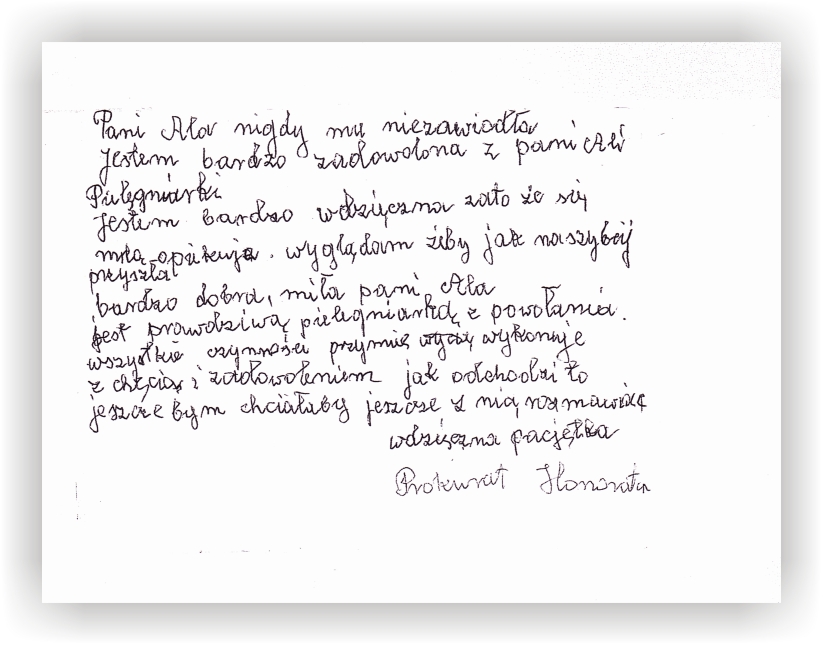 Pani Ala nigdy mu niezawiodła
Jestem bardzo zadowolona z pani Ali
Pielęgniarki
Jestem bardzo wdzięczna zato że się
mną opiekuja. wyglądam żeby jak naszybćij
przyszła
bardzo dobra, miła pani Ala
jest prawdziwą pielęgniarką z powołania.
wszystkie czynności przymię wykonuje
z chęcią i zadowoleniem jak odchodzi to
jeszcze bym chciałaby jeszcze z nią rozmawiać
wdzięczna pacjętka
Prokurat Honorata